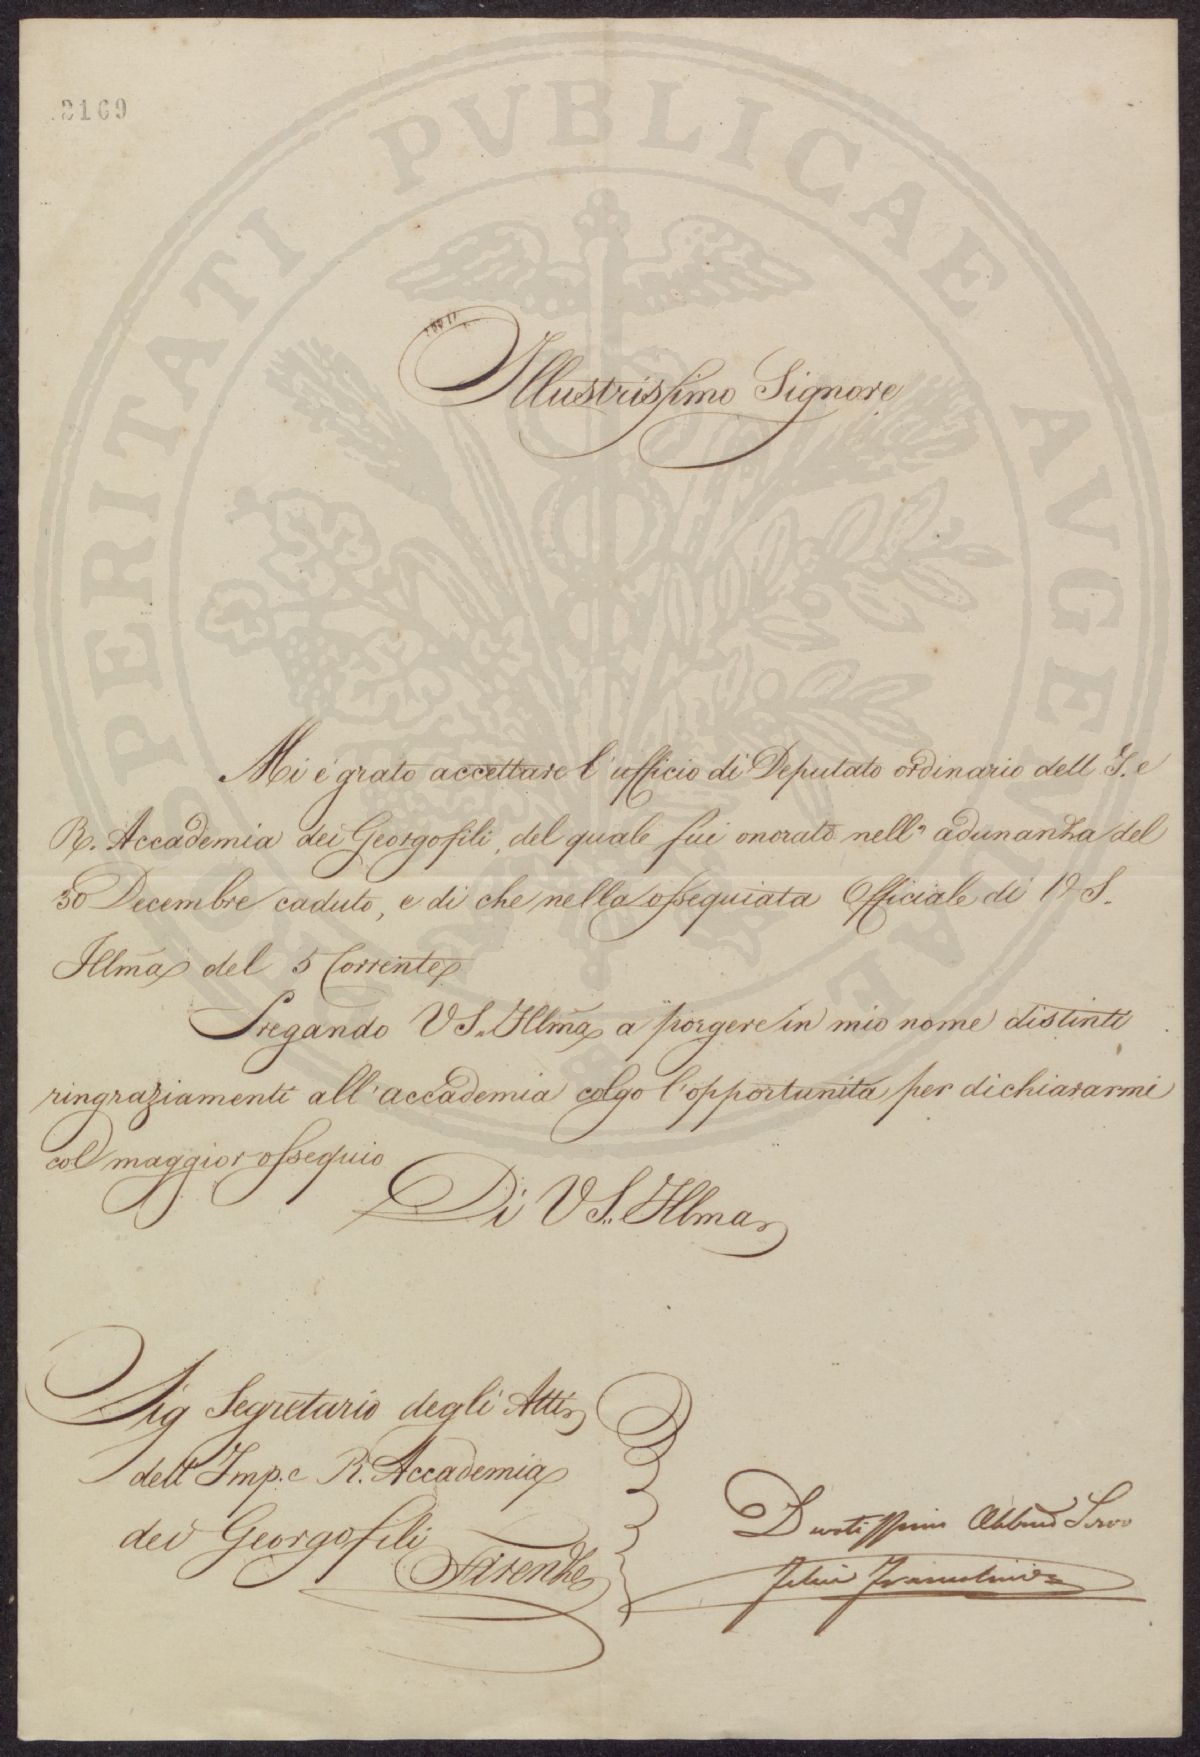 2169
PROSPERITATI PUBLICAE AUGENDAE
Illustrissimo Signore
Mi è grato accettare l'ufficio di Deputato ordinario dell'I. e
R. Accademia dei Georgofili, del quale fui onorato nell'adunanza del
30 Decembre caduto, e di che nella ossequiata Officiale di V S.
Illma del 5 Corrente
Pregando V S. Illma a porgere in mio nome distinti
ringraziamenti all'accademia colgo l'opportunità per dichiararmi
col maggior ossequio
Di V S. Illma
Sig Segretario degli Atti
dell'Imp. e R. Accademia
dei Georgofili
Firenze
Devotissimo Obbmo Servo